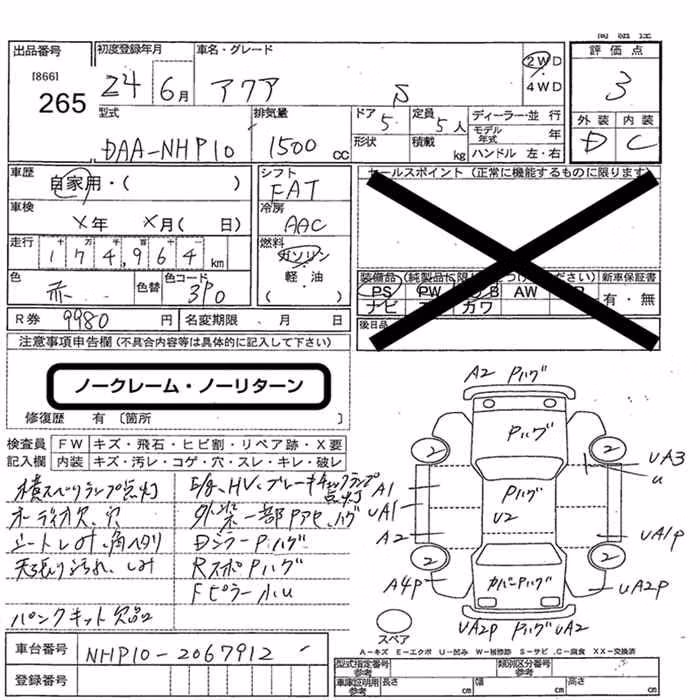 出品番号 初度登録年月 車名・グレード 評価点
[866]
265 24 6月 アクア S 2WD 4WD 3
型式 排気量 ドア 5 定員 5人 ディーラー・並行 外装 内装
DAA-NHP10 1500cc 形状 積載 kg モデル年式 年 D C
ハンドル 左・右
車歴 自家用・( ) シフト セールスポイント(正常に機能するものに限ります)
FAT
車検 X年 X月( 日) 冷房
AAC
走行 十万千百十一 174,964km 燃料
ガソリン
色 色替 色コード 軽・油
赤 3P0 ( )
装備品(純製品に限り ださい) 新車保証書
PS PW AW 有・無
ナビ カワ
R券 9980円 名変期限 月 日 後日品
注意事項申告欄(不具合内容等は具体的に記入して下さい)
ノークレーム・ノーリターン
修復歴 有〔箇所 〕
検査員 FW キズ・飛石・ヒビ割・リペア跡・X要
記入欄 内装 キズ・汚レ・コゲ・穴・スレ・キレ・破レ
横スベリランプ点灯 E/g、HV、ブレーキチェックランプ点灯
オーディオ欠、穴 外装一部Pアセ、ハゲ
シートレOt、角ヘタリ DミラーPハゲ
天張り汚れ、しみ RスポPハゲ
Fピラー小U
パンクキット欠品
A2 Pハゲ
Pハゲ
2 2
UA3
U
A1 Pハゲ
UA1 U2
A2 UA1P
2 2
A4P カバーPハゲ UA2P
スペア UA2P Pハゲ UA2
A-キズ E-エクボ U-凹み W-補修跡 S-サビ C-腐食 XX-交換済
車台番号 NHP10-2067912
登録番号
型式指定番号 参考 類別区分番号 参考
車庫証明用 参考 長さ cm 幅 cm 高さ cm